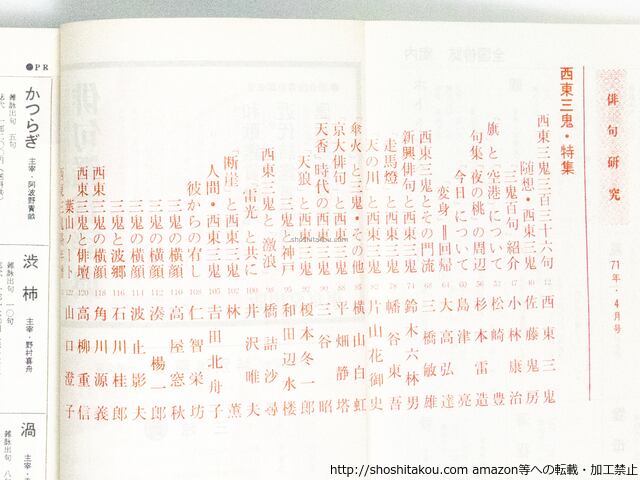 俳句研究 71年・4月号
西東三鬼・特集
西東三鬼三百三十六句 12 西東三鬼
随想・西東三鬼 佐藤鬼房
「三鬼百句」紹介 小林康治
「旗」と「空港」について 52 松崎豊
句集「夜の桃」の周辺 56 杉本雷造
「今日」について 60 島津亮
変身＝回帰 64 大高弘達
西東三鬼とその門流 68 三橋敏雄
新興俳句と西東三鬼 74 鈴木六林男
「走馬燈」と西東三鬼 78 幡谷東吾
「天の川」と西東三鬼 82 片山花御史
「傘火」と三鬼・その他 85 横山白虹
「京大俳句」と三鬼 88 平畑静塔
「天香」時代の西東三鬼 90 三谷昭
「天狼」と西東三鬼 92 榎本冬一郎
三鬼と神戸 95 和田辺水楼
西東三鬼と「激浪」 98 橋詰沙尋
「雷光」と共に 100 井沢唯夫
「断崖」と西東三鬼 102 林薫
人間・西東三鬼 105 吉田北舟子
彼からの宥し 108 仁智栄坊
三鬼の横顔 110 高屋窓秋
三鬼の横顔 112 湊楊一郎
三鬼の横顔 114 波止影夫
三鬼と波郷 116 石川桂郎
西東三鬼の横顔 118 角川源義
西東三鬼と俳壇 120 高柳重信
葉山ノート 122 山口澄子
●PR
かつらぎ
主宰・阿波野青畝
雑詠出句 五句
渋柿
主宰・野村喜舟
雑詠出句 一〇句
渦
主宰・
雑詠出句
shoshitakou.com
http://shoshitakou.com amazon等への転載・加工禁止